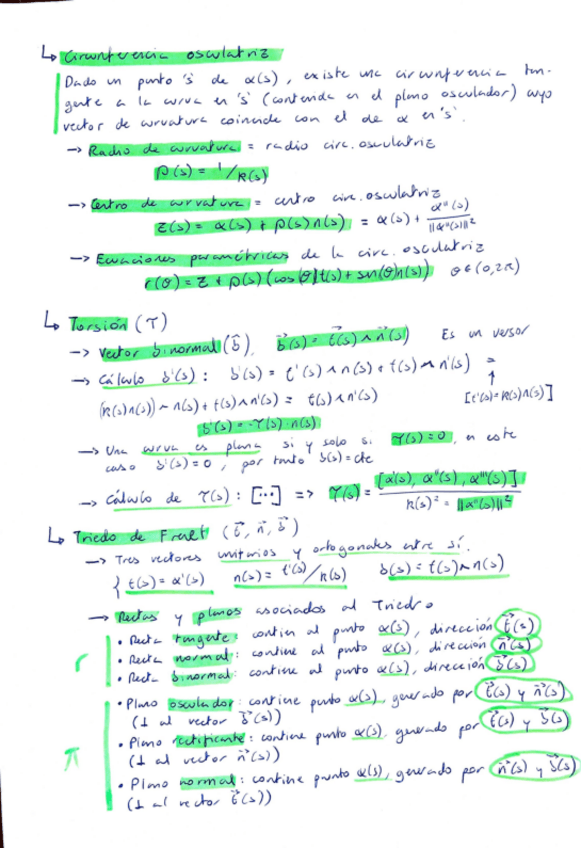 ↳ Circunferencia osculatriz
Dado un punto 's' de α(s), existe una circunferencia tan-
gente a la curva en 's' (contenida en el plano osculador) cuyo
vector de curvatura coincide con el de α en 's'.
→ Radio de curvatura = radio circ. osculatriz
ρ(s) = 1/k(s)
→ Centro de curvatura = centro circ. osculatriz
z(s) = α(s) + ρ(s)n(s) = α(s) + α''(s)/||α''(s)||²
→ Ecuaciones paramétricas de la circ. osculatriz
r(θ) = z + ρ(s)(cos(θ)t(s) + sen(θ)n(s)) θ ∈ (0,2π)
↳ Torsión (τ)
→ Vector binormal (b⃗). b⃗(s) = t⃗(s) ∧ n⃗(s) Es un versor
→ Cálculo b'(s): b'(s) = t'(s) ∧ n(s) + t(s) ∧ n'(s) =
(k(s)n(s)) ∧ n(s) + t(s) ∧ n'(s) = t(s) ∧ n'(s) [t'(s) = k(s)n(s)]
b'(s) = -τ(s)·n(s)
→ Una curva es plana si y solo si τ(s)=0, en este
caso b'(s)=0, por tanto b(s)=cte
→ Cálculo de τ(s): [...] => τ(s) = [α'(s), α''(s), α'''(s)] / k(s)² = ||α''(s)||²
↳ Triedo de Frenet (t⃗, n⃗, b⃗)
→ Tres vectores unitarios y ortogonales entre sí.
{ t(s) = α'(s) n(s) = t'(s)/k(s) b(s) = t(s) ∧ n(s)
→ Rectas y planos asociados al Triedro
r • Recta tangente: contien al punto α(s), dirección t⃗(s)
• Recta normal: contiene al punto α(s), dirección n⃗(s)
• Recta binormal: contiene al punto α(s), dirección b⃗(s)
• Plano osculador: contiene punto α(s), generado por t⃗(s) y n⃗(s)
(⊥ al vector b⃗(s))
π • Plano rectificante: contiene punto α(s), generado por t⃗(s) y b⃗(s)
(⊥ al vector n⃗(s))
• Plano normal: contiene punto α(s), generado por n⃗(s) y b⃗(s)
(⊥ al vector t⃗(s))